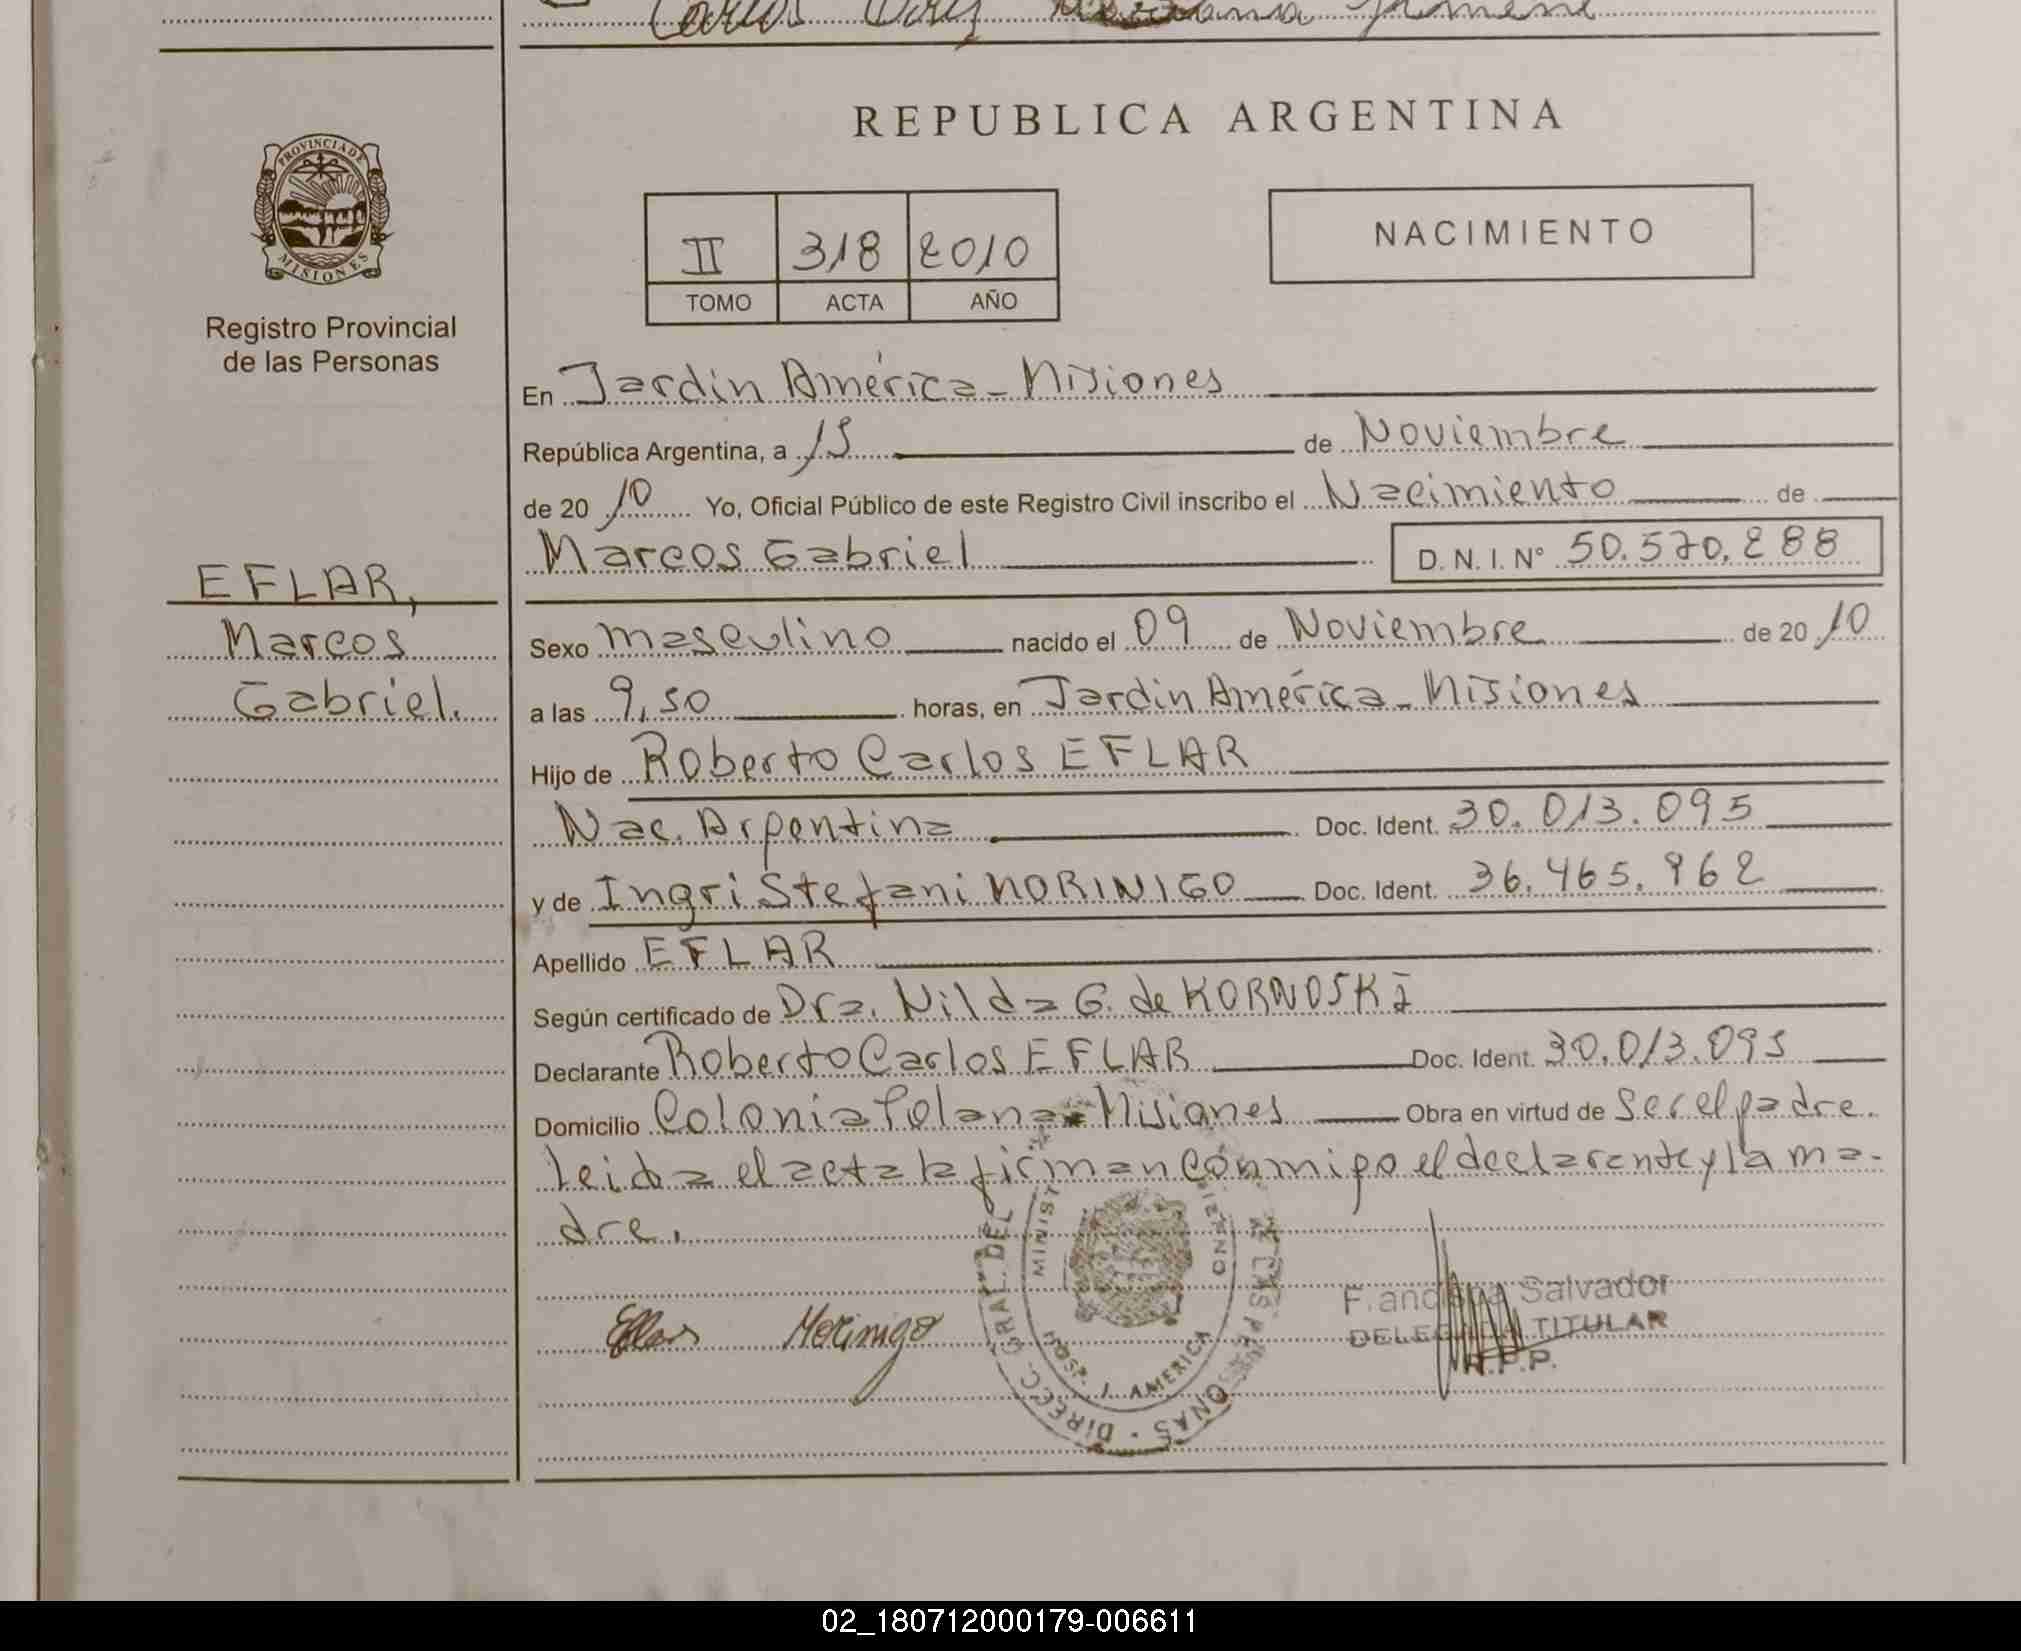 Carlos
REPUBLICA ARGENTINA
PROVINCIA DE
MISIONES
Registro Provincial
de las Personas
II 318 2010
TOMO ACTA AÑO
NACIMIENTO
En Jardín América - Misiones
República Argentina, a 15 de Noviembre
de 20 10 Yo, Oficial Público de este Registro Civil inscribo el Nacimiento de
Marcos Gabriel D. N. I. N° 50.570.288
EFLAR,
Marcos
Gabriel.
Sexo masculino nacido el 09 de Noviembre de 20 10
a las 9,50 horas, en Jardín América - Misiones
Hijo de Roberto Carlos EFLAR
Nac. Argentina Doc. Ident. 30.013.095
y de Ingri Stefani MORINIGO Doc. Ident. 36.465.962
Apellido EFLAR
Según certificado de Dra. Nilda G. de KORNOSKI
Declarante Roberto Carlos EFLAR Doc. Ident. 30.013.095
Domicilio Colonia Polana - Misiones Obra en virtud de ser el padre.
Leida el acta la firman conmigo el declarante y la ma-
dre.
Morinigo
DIRECC. GRAL. DEL
MINIST
HOSP. J. AMERICA
Salvador
TITULAR
R.P.P.
02_180712000179-006611